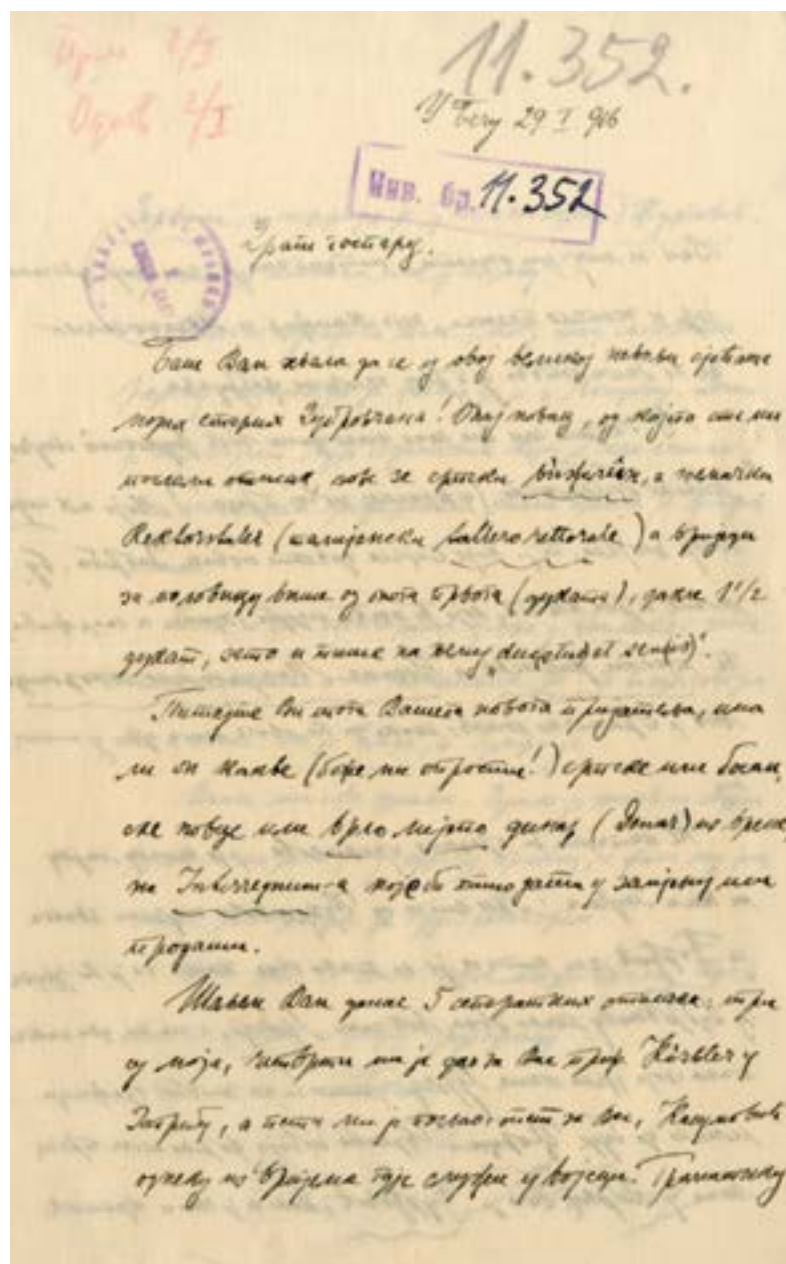 11.352.
У Бечу 29 I 916
Инв. бр. 11.352
Драги господару,
Баш Вам хвала да се у овој великој невољи сјећате
мојих старих Дубровчана! Онај новац, од којега сте ми
послали отисак зове се српски вижлин, а њемачки
Rektorstaler (талијански tallero rettorale) а вриједи
за половицу више од онога првога (дуката), дакле 1 1/2
дукат, зато и пише на њему „duc(atus) et sem(is)“.
Питајте Ви онога Вашега новога пријатеља, има
ли он какве (боже ми опрости!) српске или босан,
ске новце или врло лијепо динар (Denar) из време,
на Interregnum-а које би хтио дати у замјену или
продати.
Шаљем Вам данас 5 сепаратних отисака: три
су моја, четврти ми је дао за Вас проф. Körbler у
Загребу, а пети ми је послао опет за Вас,
однекуд из гдје служи у војсци.